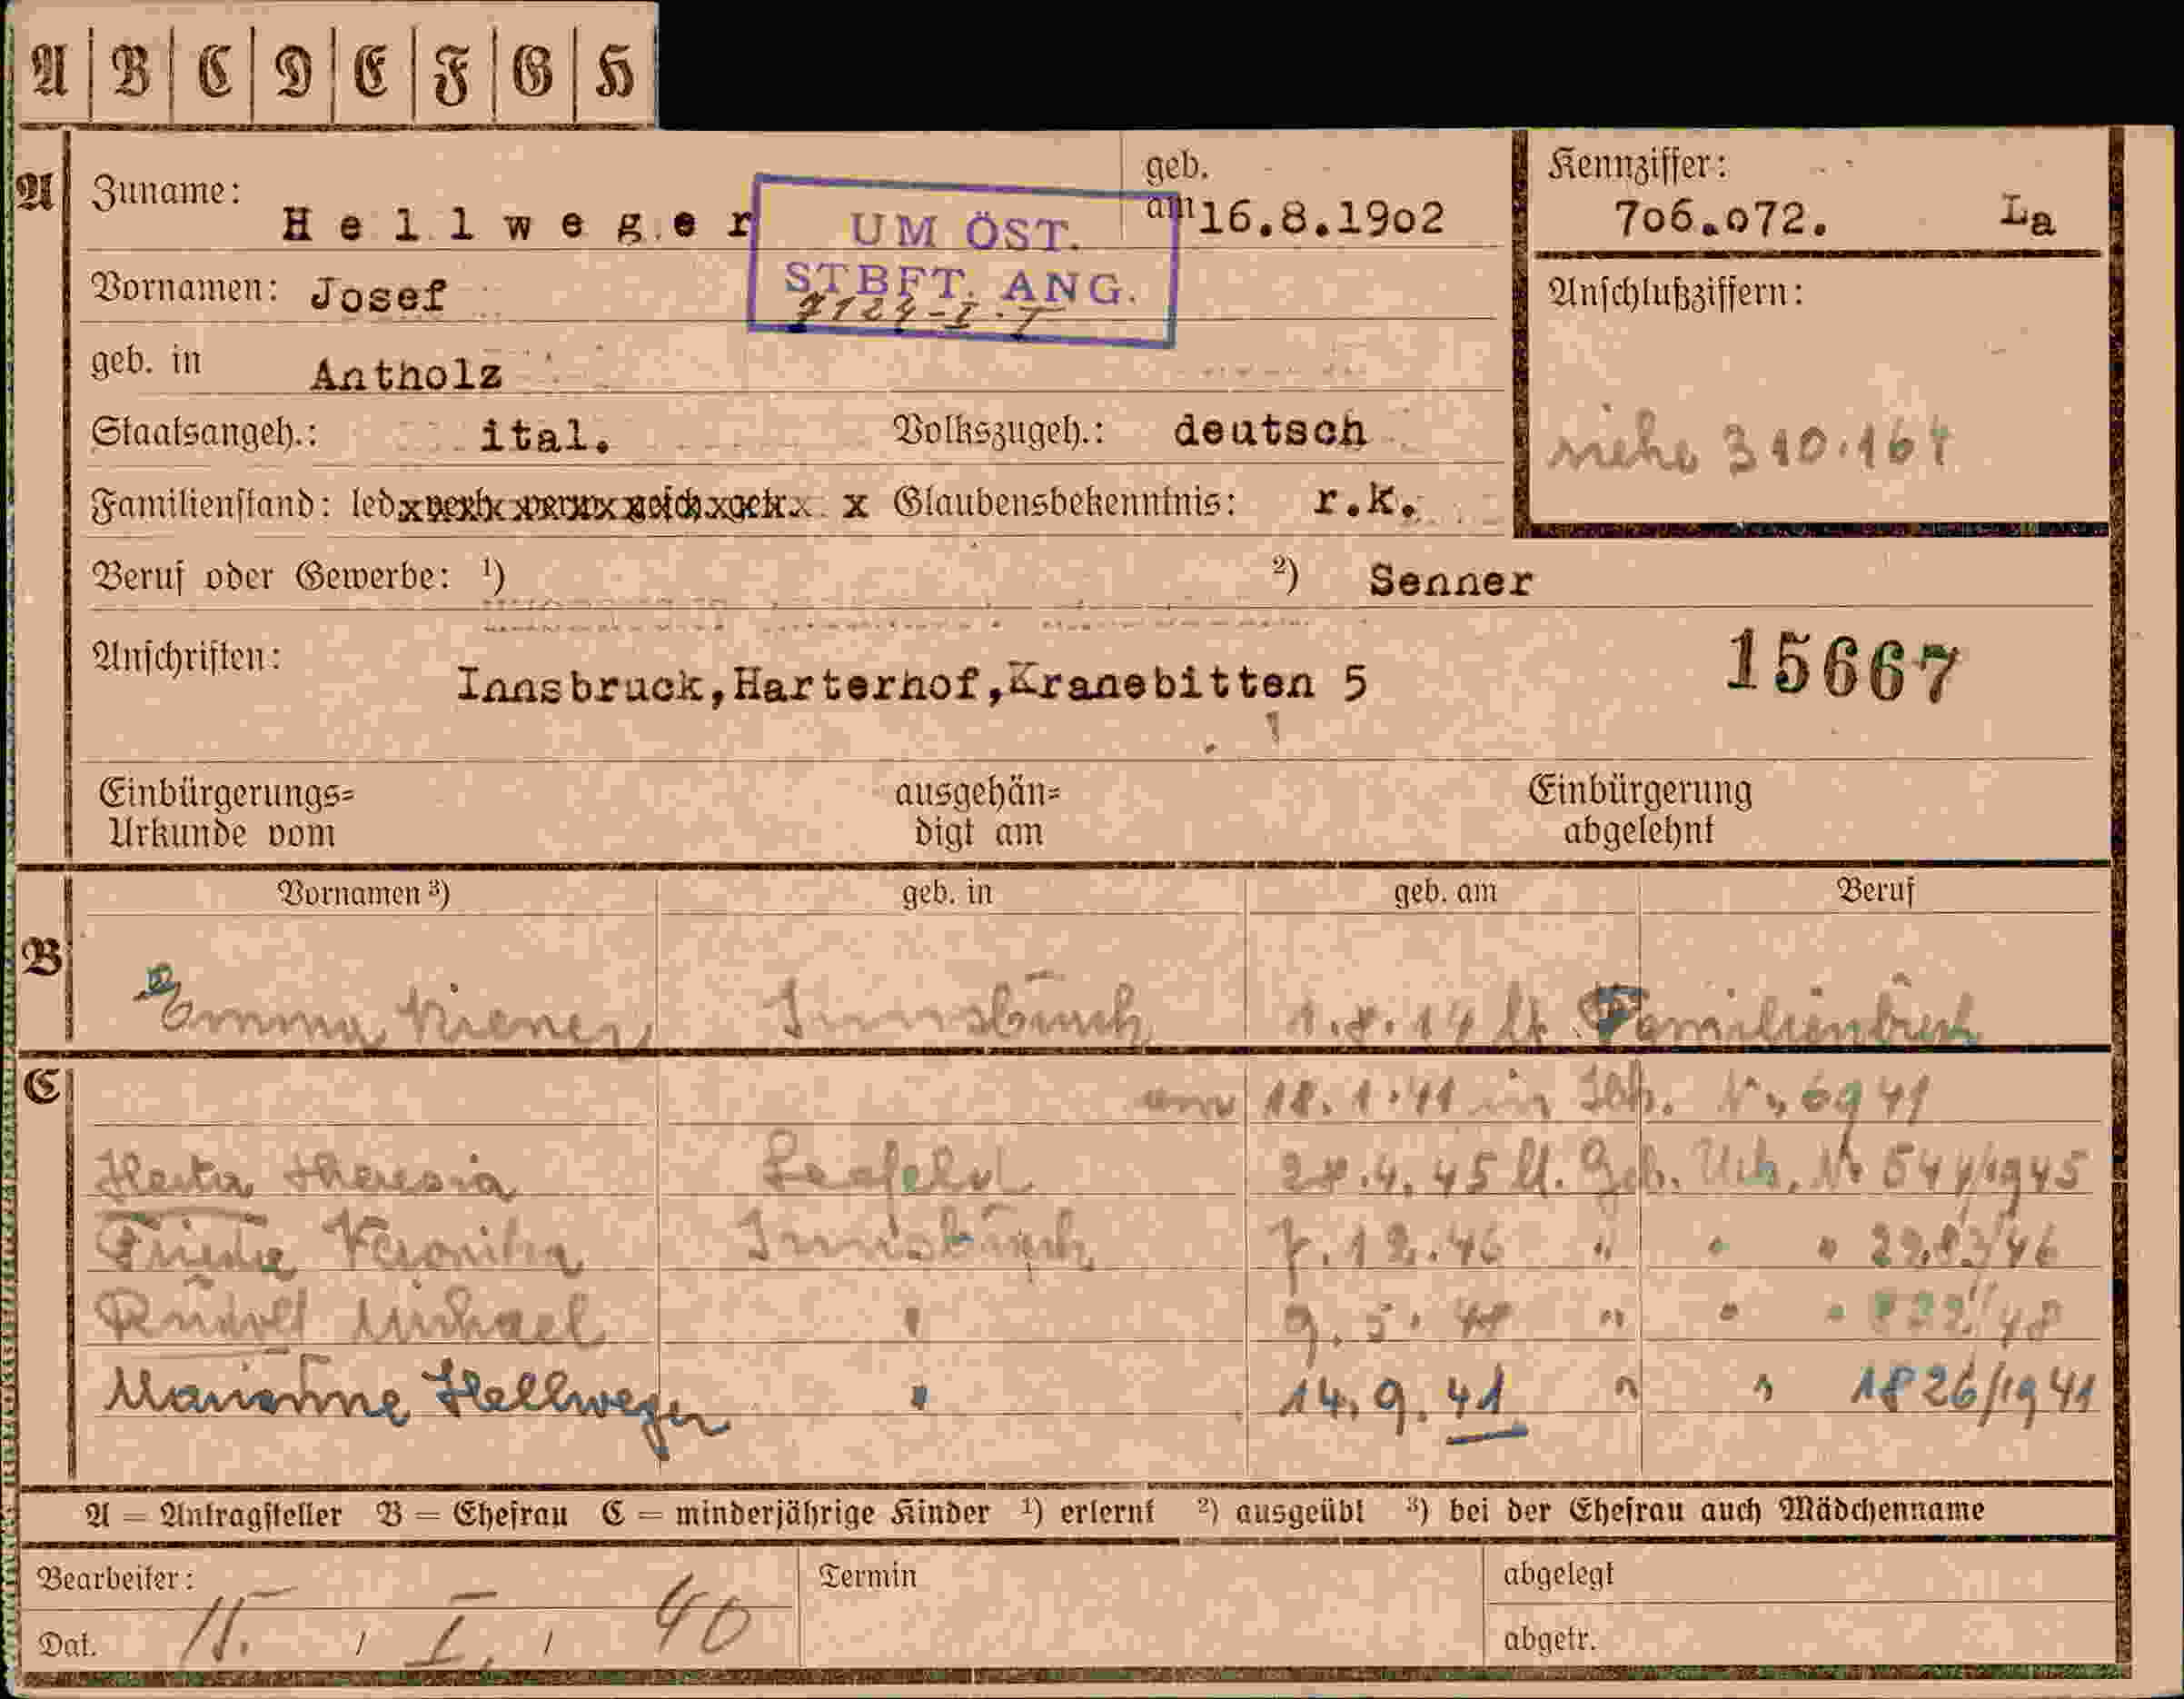 A B C D E F G H
A
Zuname: Hellweger
geb. am 16.8.19o2
Kennziffer: 7o6.o72. La
UM ÖST. STBFT. ANG.
Vornamen: Josef
Anschlußziffern:
geb. in Antholz
siehe 310.164
Staatsangeh.: ital. Volkszugeh.: deutsch
Familienstand: led x Glaubensbekenntnis: r.k.
Beruf oder Gewerbe: ¹) ²) Senner
Anschriften: Innsbruck,Harterhof,Kranebitten 5
15667
Einbürgerungs=Urkunde vom ausgehän=digt am Einbürgerung abgelehnt
B
Vornamen ³) geb. in geb. am Beruf
Emma Innsbruck 1.8.14 lt. Familienbuch
C
am 18.1.41 in Ibk. Nr. 69 41
Herta Theresia Seefeld 28.4.45 lt. Geb. Urk. Nr 544/1945
Friede Veronika Innsbruck 7.12.46 " " "
Rudolf Michael " 9.5.48 " " "
Marianne Hellweger " 14.9.41 " " 1826/1941
A = Antragsteller B = Ehefrau C = minderjährige Kinder ¹) erlernt ²) ausgeübt ³) bei der Ehefrau auch Mädchenname
Bearbeiter: Termin abgelegt
Dat. I. 40 abgetr.